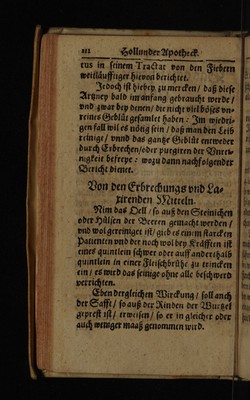 112 Hollunder Apotheck.
tus in seinem Tractat von den Fiebern
weitläufftiger hievon berichtet.
Jedoch ist hiebey zu mercken / daß diese
Artzney bald im anfang gebraucht werde /
vnd zwar bey denen / die nicht viel böses vn-
reines Geblüt gesamlet haben: Im wiedri-
gen fall wil es nötig sein / daß man den Leib
reinige / vnnd das gantze Geblüt entweder
durch Erbrechen / oder purgiren der Vnrei-
nigkeit befreye: wozu dann nachfolgender
Bericht dienet.
Von den Erbrechungs vnd La-
xirenden Mitteln.
Nim das Oell / so auß den Steinichen
oder Hülsen der Beeren gemacht werden /
vnd wol gereiniget ist / gieb es einem starcken
Patienten vnd der noch wol bey Kräfften ist
eines quintlein schwer oder auff anderthalb
quintlein in einer Fleischbrühe zu trincken
ein / es wird das seinige ohne alle beschwerd
verrichten.
Eben dergleichen Wirckung / soll auch
der Safft / so auß der Rinden der Wurtzel
geprest ist / erweisen / so er in gleicher oder
auch weniger maaß genommen wird.